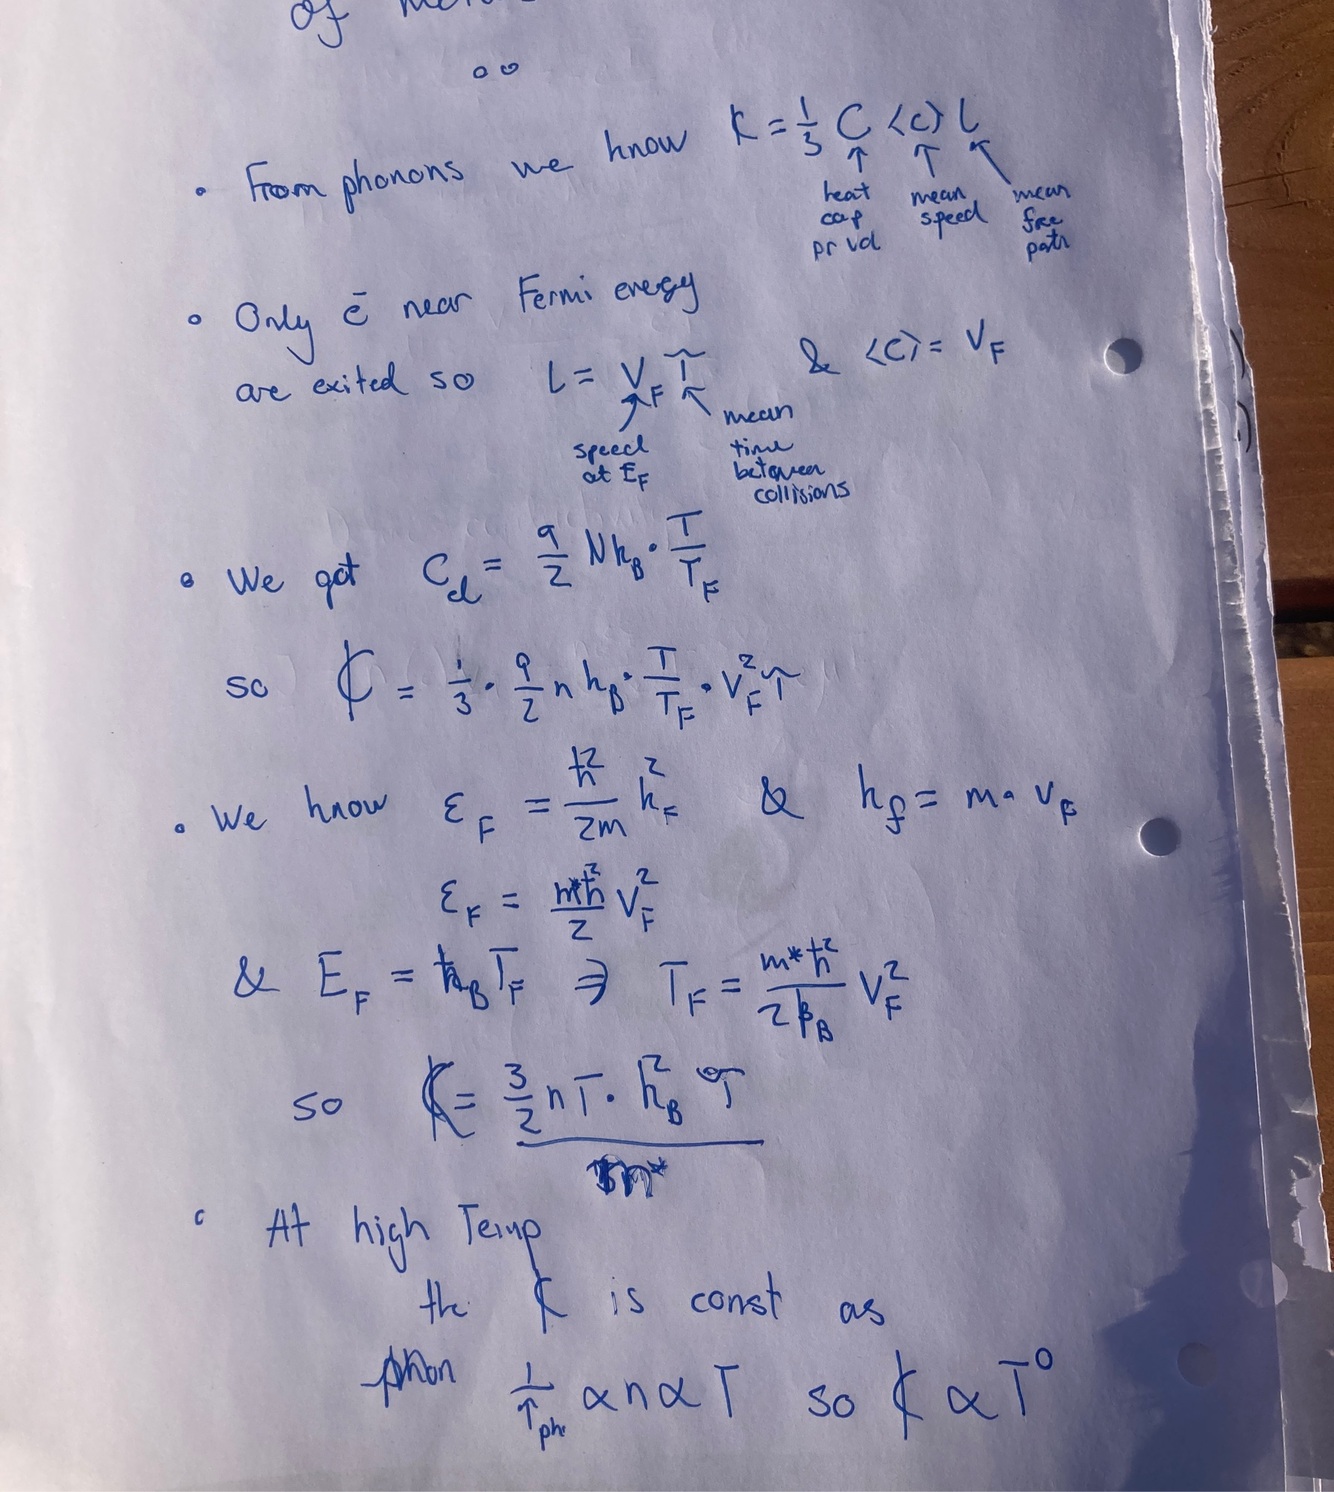 of
• From phonons we know K = 1/3 C <c> l
heat cap pr vol
mean speed
mean free path
• Only ē near Fermi energy
are exited so l = V_F τ & <c> = V_F
speed at E_F
mean time between collisions
• We got C_el = 9/2 N k_B · T/T_F
so K = 1/3 · 9/2 n k_B · T/T_F · V_F² τ
• We know ε_F = ħ²/2m k_F² & k_f = m · V_F
ε_F = m*ħ²/2 V_F²
& E_F = k_B T_F ⇒ T_F = m*ħ²/2k_B V_F²
so K = 3/2 n T · k_B² τ / m*
• At high Temp
the K is const as
phon 1/τ_ph ∝ n ∝ T so K ∝ T⁰